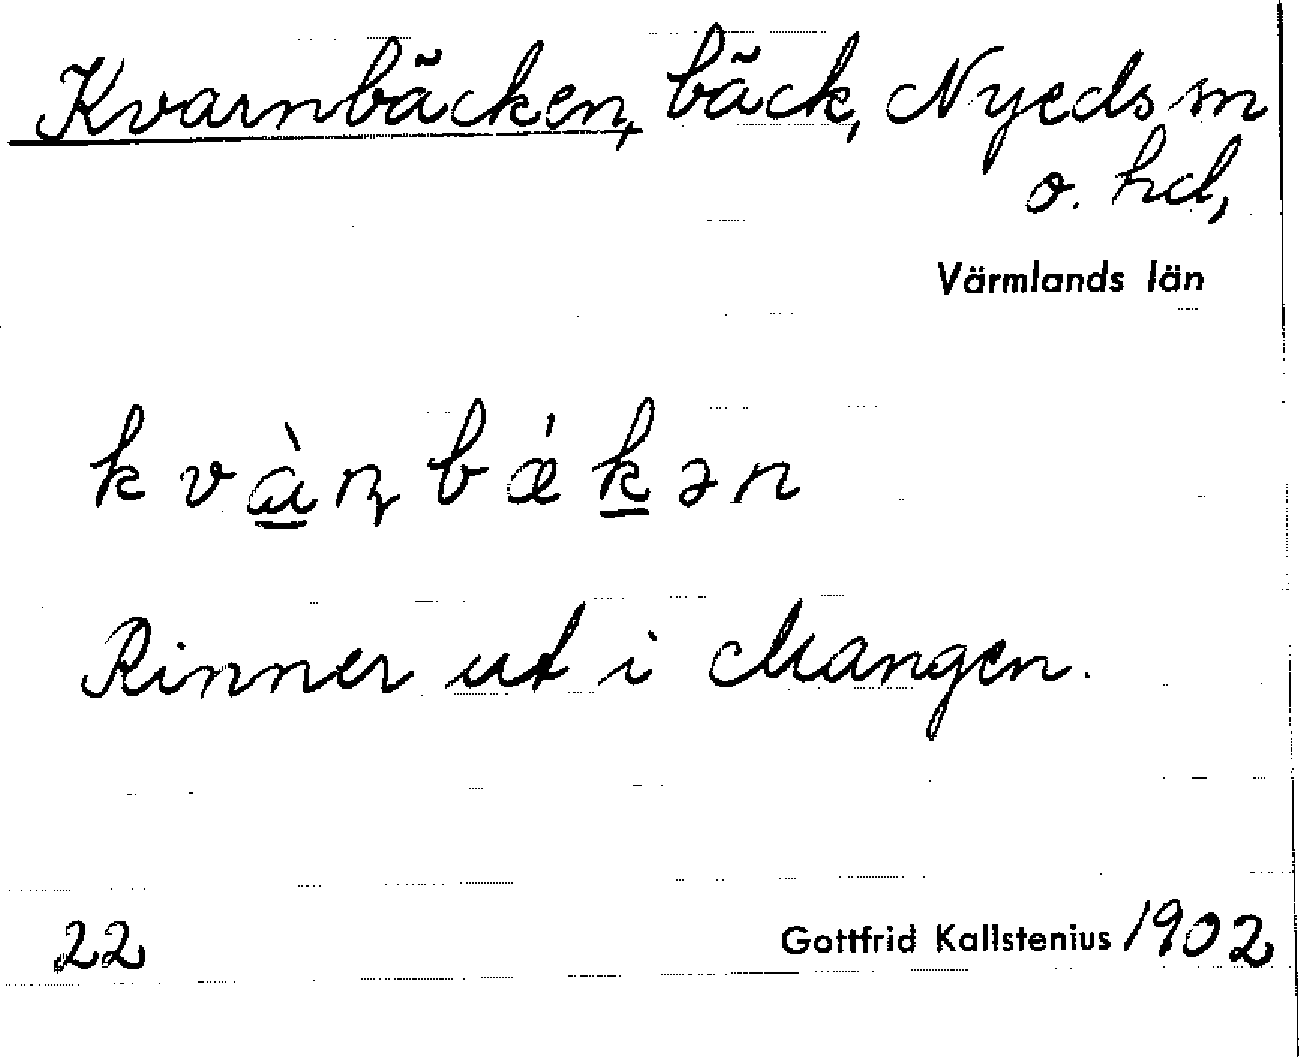 Kvarnbäcken, bäck, Nyeds sn
o. hd,
Värmlands län
k v à ɳ b ǽ k ə n
Rinner ut i Mangen.
22 Gottfrid Kallstenius 1902